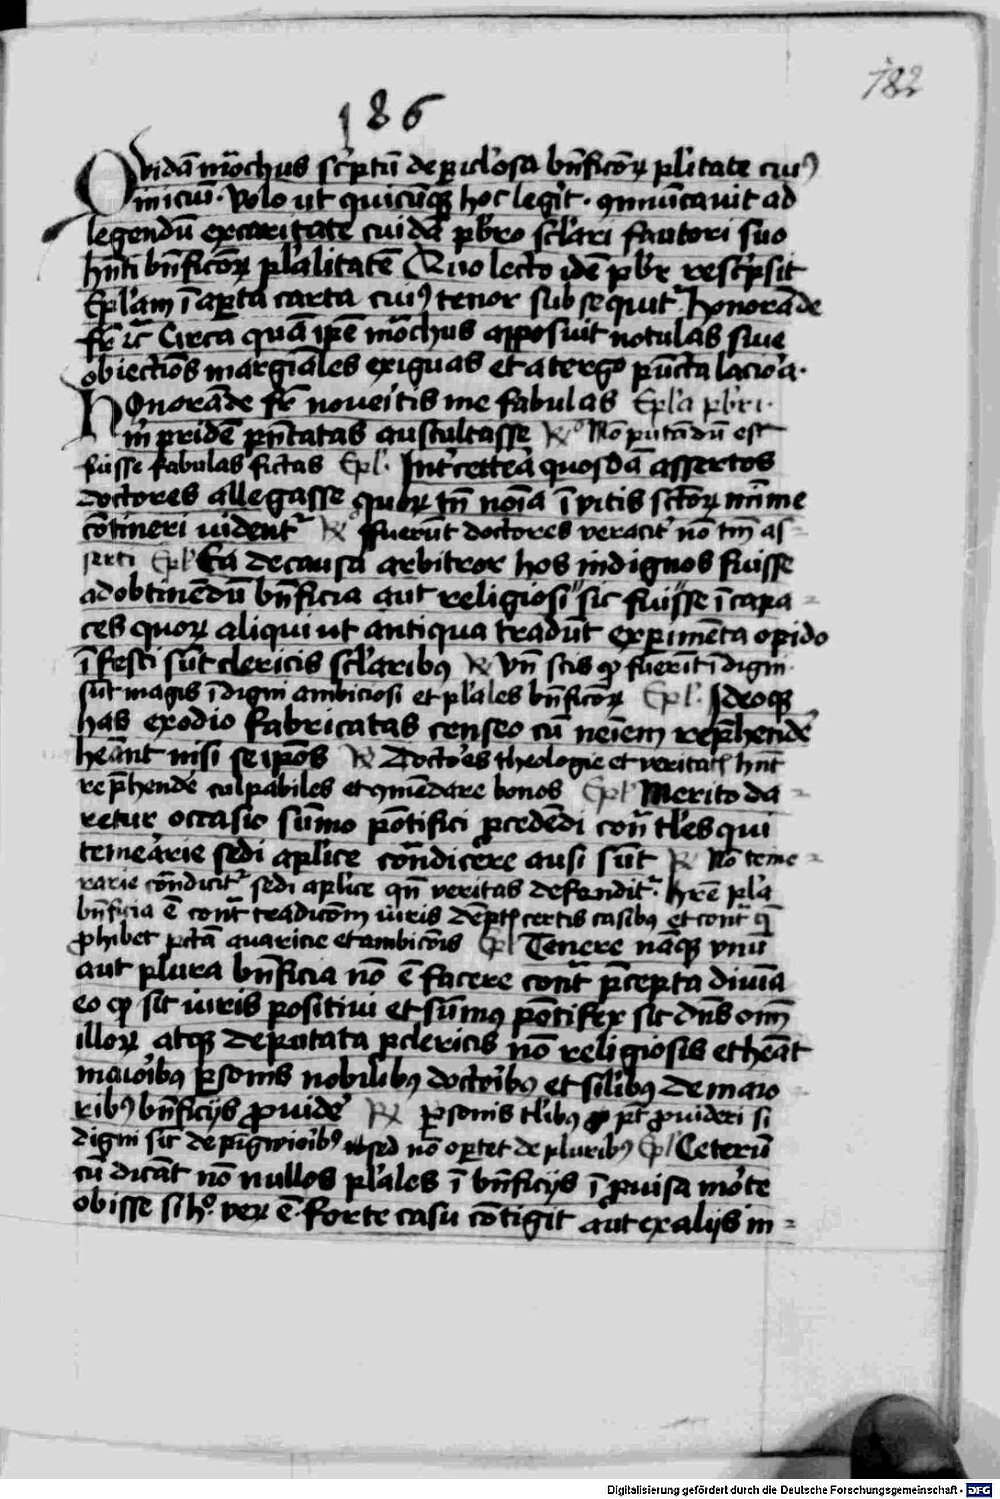 182
186
Quidā mōchus sc̄ptū de piclosa bn̄ficōꝝ pl̄itate cuiꝰ
inicıū. Volo ut quicūqꝫ hoc legit. ꝯmūicavit ad
legendū ex caritate cuidā pb̄ro sc̄lari fautori suo
hn̄ti bn̄ficōꝝ pl̄alitatē Quo lecto idē pb̄r resc̄psit
Epl̄am ī apta carta cuiꝰ tenor subsequit̄ Honorāde
fr̄ ꝛc̄ Circa quā ip̄e mōchus apposuit notulas siue
obiectiōs margīales exiguas et a tergo pūcta lacio'a.
Honorāde fr̄ noueitis me fabulas Epl̄a pb̄ri.
m̄ pridē pn̄tatas auscultasse ℞º Nō putādū est
fuisse fabulas fictas Epl̄. Int̄cetteā quosdā assertos
doctores allegasse quoꝝ tn̄ noīa ī vitis sc̄toꝝ mīme
cōtineri uident̄ ℞º ffuerūt doctores veracit̄ nō tm̄ as-
serti Epl̄ Ea de causa arbitror hos indignos fuisse
ad obtinēdū bn̄ficia aut religiosi sic fuisse īcapa-
ces quoꝝ aliqui ut antiqua tradūt experimēta opido
īfesti sūt clericis sc̄laribꝰ ℞ Vn̄ scis ꝙ fuerīt īdigni.
sūt magis īdigni ambiciosi et pl̄ales bn̄ficōꝝ Epl̄. Ideoqꝫ
has exodio fabricatas censeo cū neīem rep̄hendē
heānt nisi seip̄os ℞ Doctoēs theologie et veritatꝭ hn̄t
rep̄hendē culpabiles et ꝯmēdare bonos Epl̄ Merito da-
retur occasio sūmo pōtifici ꝓcedēdi con̄ tl̄es qui
temeārie sedi apl̄ice cōn̄dicēre ausi sūt ℞ Nō teme-
rarie cōn̄dicit̄ sedi apl̄ice qn̄ veritas defendit̄. hr̄e pl̄a
bn̄ficia ē cont̄ tradicōm iuris dēptꝭ certis casibꝰ et cont̄ qd̄
ꝓhibet pctā auaricie et ambicōis Epl̄ Tenere nāqꝫ vnū
aut plura bn̄ficia nō ē facere cont̄ p̄cepta diuīa
eo ꝙ sit iuris positiui et sūmꝰ pōtifex sit dn̄s oīm
illoꝝ atqꝫ deputata ꝓ clericis nō religiosis et heāt
maioībꝰ ꝑsonis nobilibꝰ doctoībꝰ et sil̄ibꝰ de maio-
ribꝰ bn̄ficijs ꝓuidē ℞ ꝑsonis tl̄ibꝰ pt̄ ꝓuideri si
digni sīt de pīgwioībꝰ sed nō oꝑtet de pluribꝰ Epl̄ Ceterū
cū dicāt nō nullos pl̄ales ī bn̄ficijs īꝓuisa mōte
obisse si hº. veꝝ ē. forte casu cōtigit aut ex alijs in-
Digitalisierung gefördert durch die Deutsche Forschungsgemeinschaft - DFG